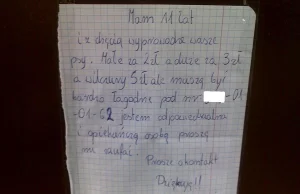 Mam 11 lat
i z chęcią wyprowadzę wasze
psy. Małe za 2zł a duże za 3zł
a wilczury 5zł ale muszą być
bardzo łagodne pod nr -01
-01-62 jestem odpowiedzialna
i opiekuńczą osobą proszę
mi zaufać.
Proszę o kontakt
Dziękuję!!